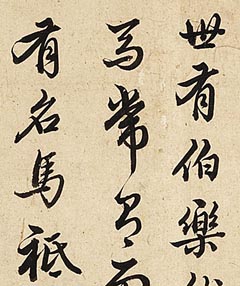 世有伯樂
馬常有而
有名馬祗